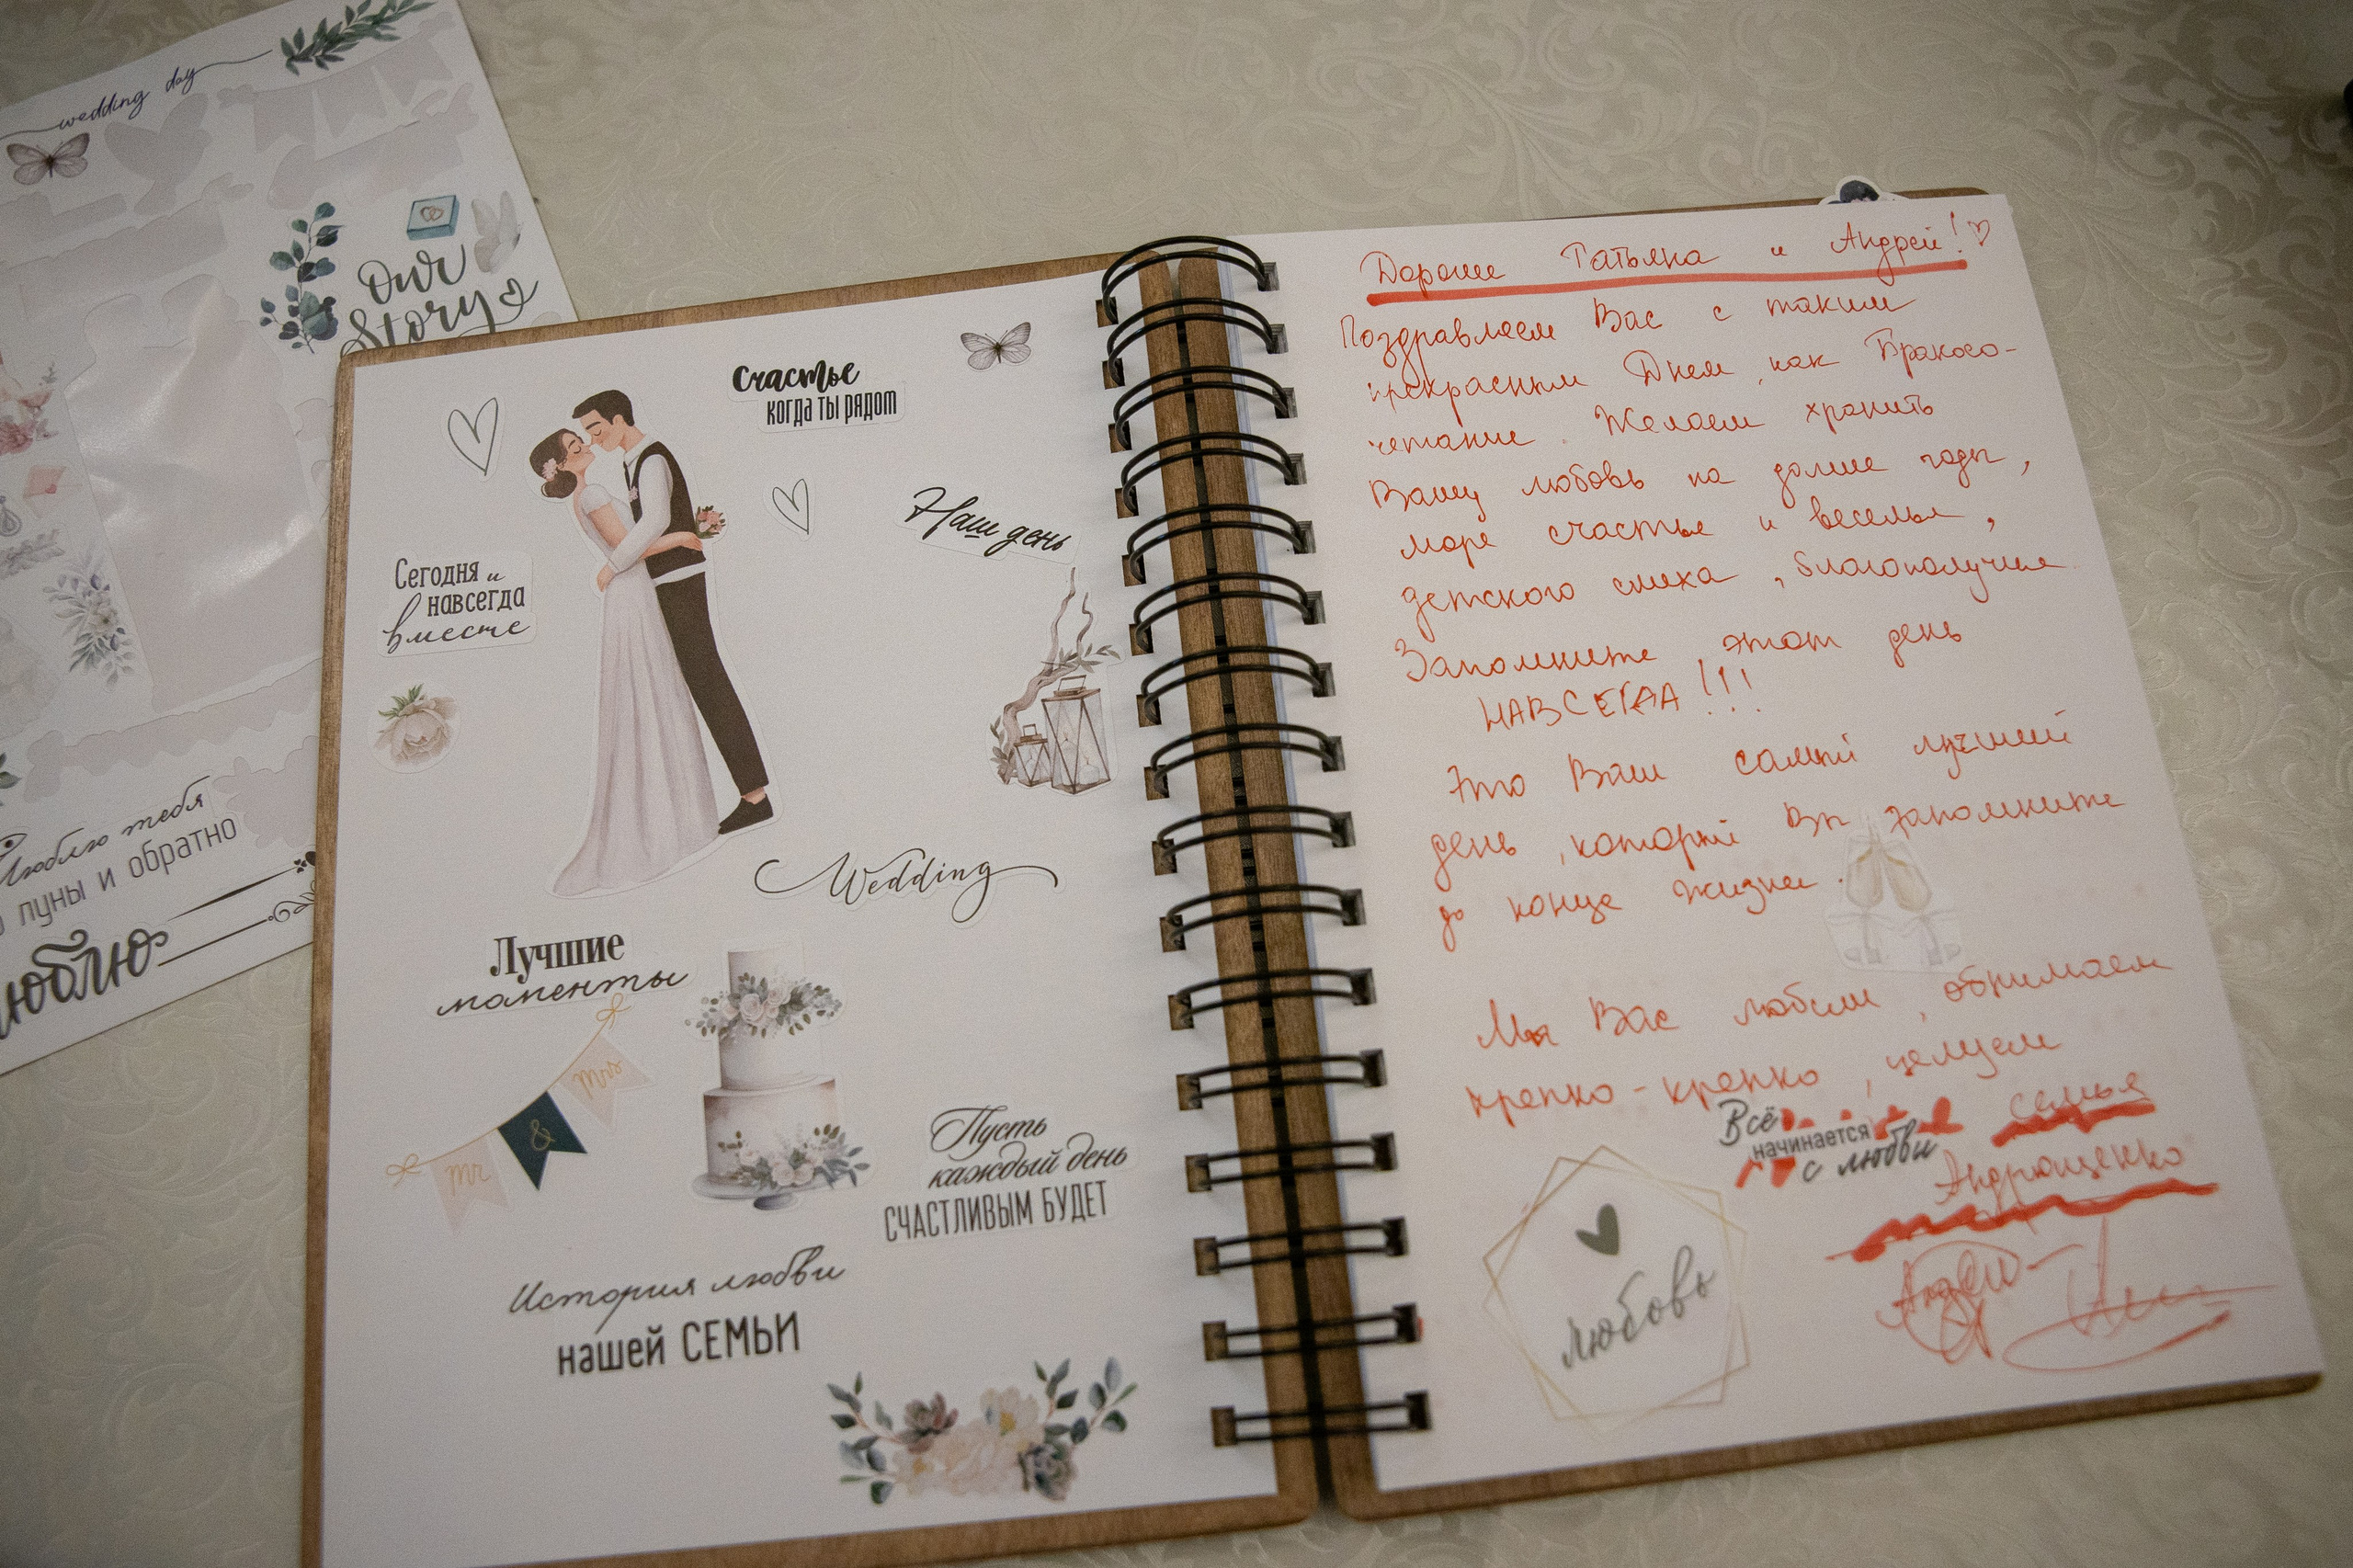 wedding day
Our
Story
Люблю тебя
луны и обратно
люблю
Счастье
когда ты рядом
Наш день
Сегодня и
навсегда
вместе
Wedding
Лучшие
моменты
Mr & Mrs
Пусть
каждый день
СЧАСТЛИВЫМ БУДЕТ
История любви
нашей СЕМЬИ
Дорогие Татьяна и Андрей!
Поздравляем Вас с таким
прекрасным Днем, как Бракосо-
четание. Желаем хранить
Вашу любовь на долгие годы,
море счастья и веселья,
детского смеха, благополучия
Запомните этот день
НАВСЕГДА!!!
Это Ваш самый лучший
день, который Вы запомните
до конца жизни.
Мы Вас любим, обнимаем
крепко-крепко, целуем
семья
Андрющенко
Всё
начинается
с любви
любовь